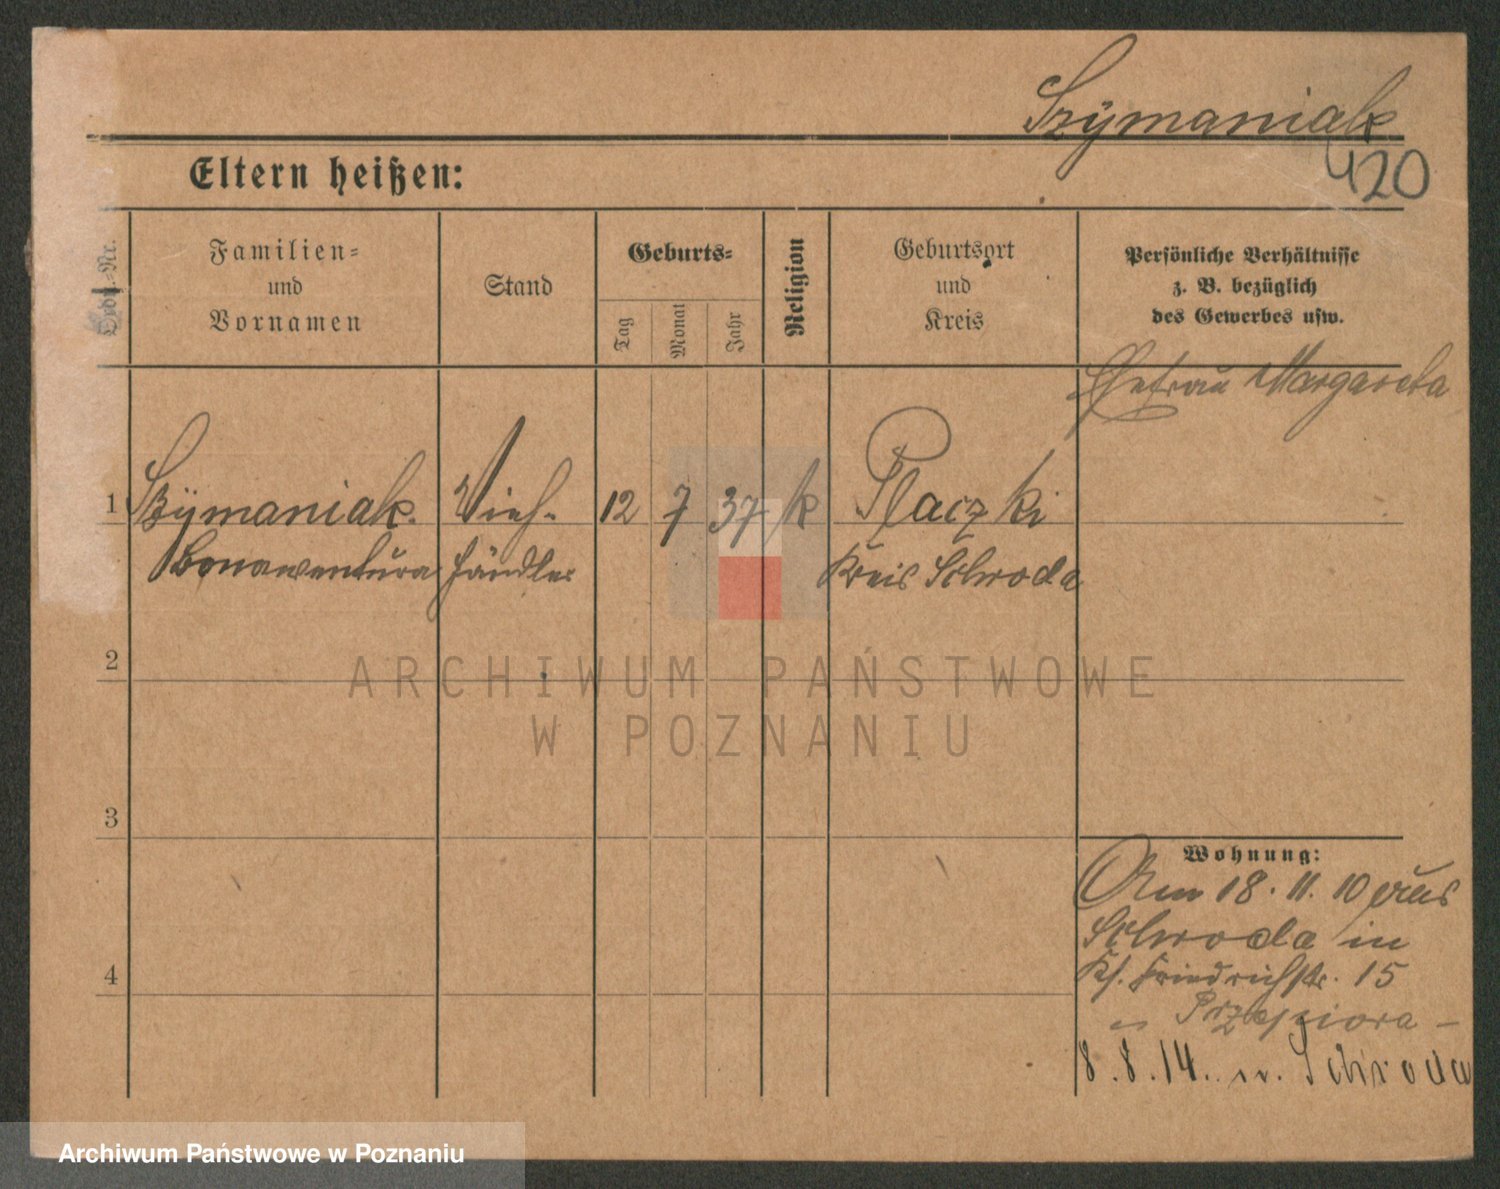 Szÿmaniak
420
Eltern heißen:
Ordn.-Nr.
Familien-
und
Vornamen
Stand
Geburts-
Tag
Monat
Jahr
Religion
Geburtsort
und
Kreis
Persönliche Verhältnisse
z. B. bezüglich
des Gewerbes usw.
Ehefrau Margareta
1 Szÿmaniak. Vieh- 12 7 37 k Placzki
Bonawentura händler Kreis Schroda
2
3
4
Wohnung:
Am 18. 11. 10 aus
Schroda in
Friedrichstr. 15
8.8.14. n. Schroda
ARCHIWUM PAŃSTWOWE
W POZNANIU
Archiwum Państwowe w Poznaniu